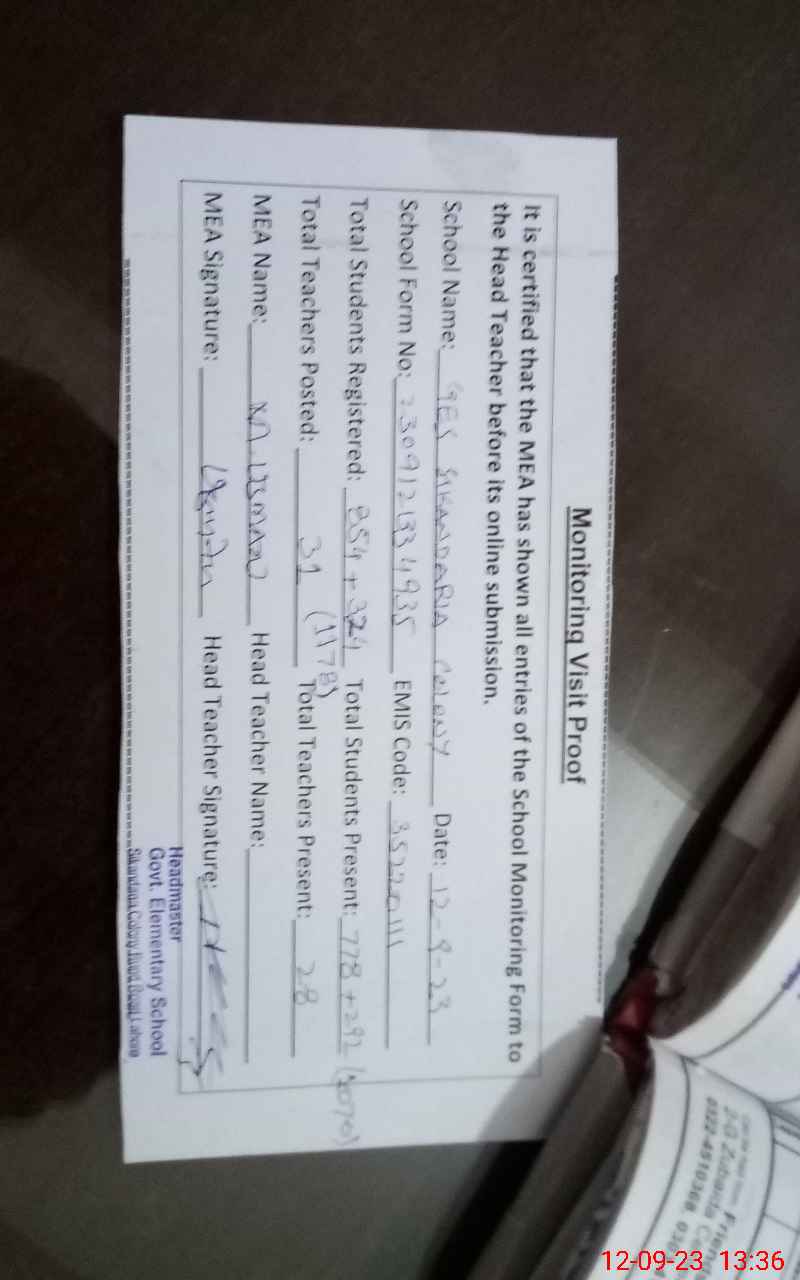 Monitoring Visit Proof
It is certified that the MEA has shown all entries of the School Monitoring Form to
the Head Teacher before its online submission.
School Name: GES SIKANDARIA COLONY Date: 12-9-23
School Form No: 2309121334935 EMIS Code: 35220111
Total Students Registered: 854+324 (1178) Total Students Present: 778+292 (1070)
Total Teachers Posted: 31 Total Teachers Present: 28
MEA Name: M. USMAN Head Teacher Name:
MEA Signature: Head Teacher Signature:
Headmaster
Govt. Elementary School
Sikandaria Colony Lahore
0322-4510368
12-09-23 13:36